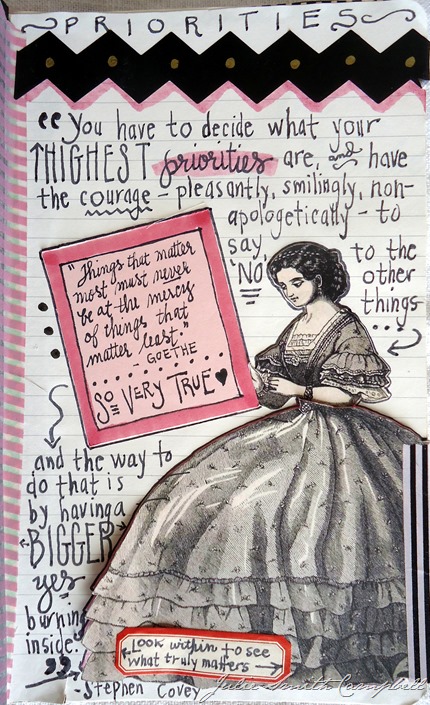 PRIORITIES
"You have to decide what your
HIGHEST priorities are, and have
the courage - pleasantly, smilingly, non-
apologetically - to
say
'NO'
to the
other
things
...
"Things that matter
most must never
be at the mercy
of things that
matter least."
- GOETHE
So VERY TRUE ♥
and the way to
do that is
by having a
BIGGER
yes
burning
inside."
- Stephen Covey
Look within to see
what truly matters
Julie Smith Campbell